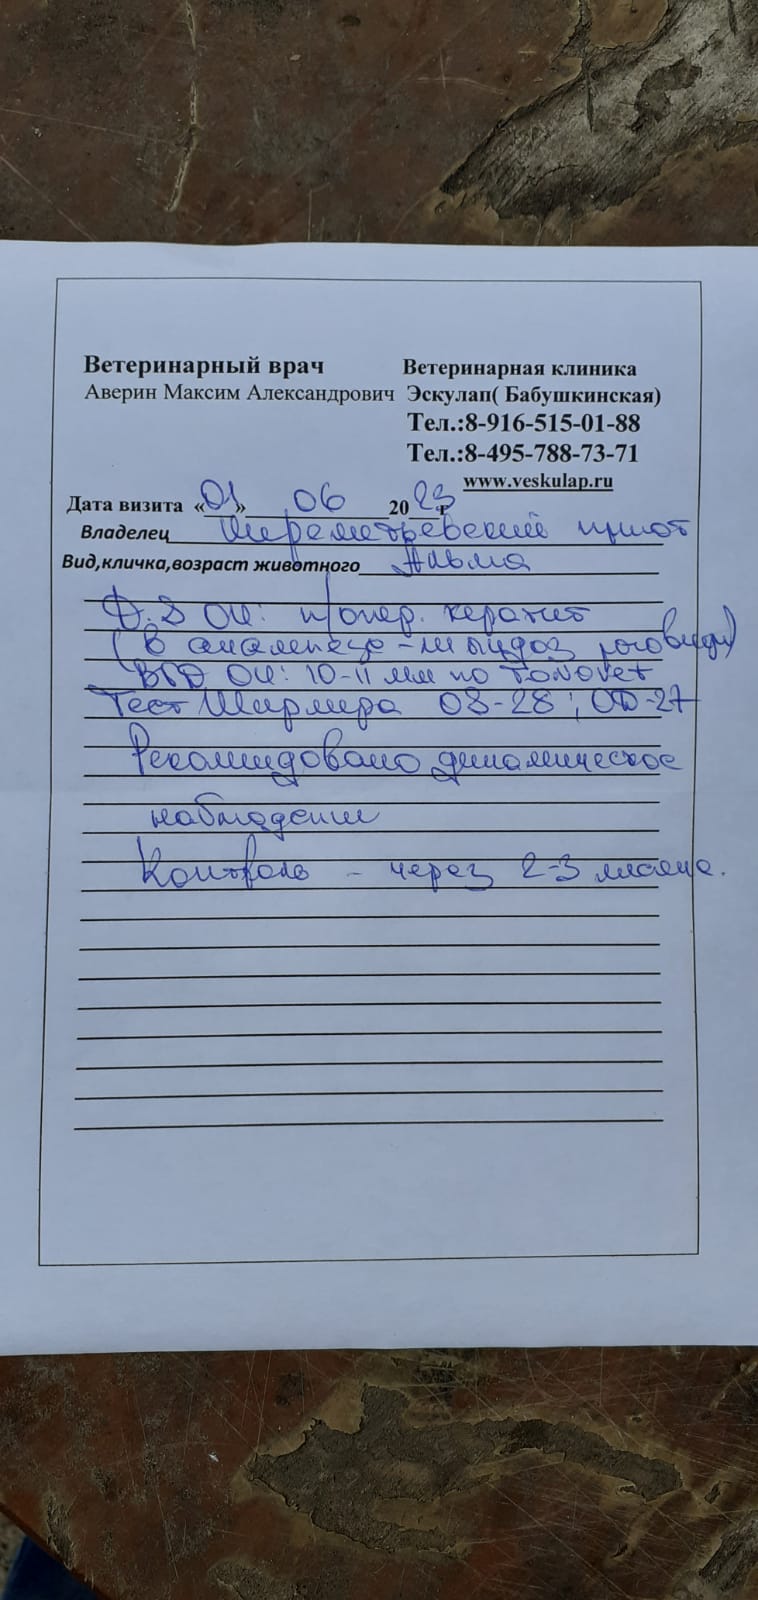 Ветеринарный врач Ветеринарная клиника
Аверин Максим Александрович Эскулап( Бабушкинская)
Тел.:8-916-515-01-88
Тел.:8-495-788-73-71
www.veskulap.ru
Дата визита «01» 06 2023г
Владелец Шереметьевский приют
Вид,кличка,возраст животного Альма
D.S OU: п/опер. кератит
(в анамнезе - роговицы)
ВГД OU: 10-11 мм по TONOVET
Тест Ширмера OS-28; OD-27
Рекомендовано динамическое
наблюдение
Контроль - через 2-3 месяца.